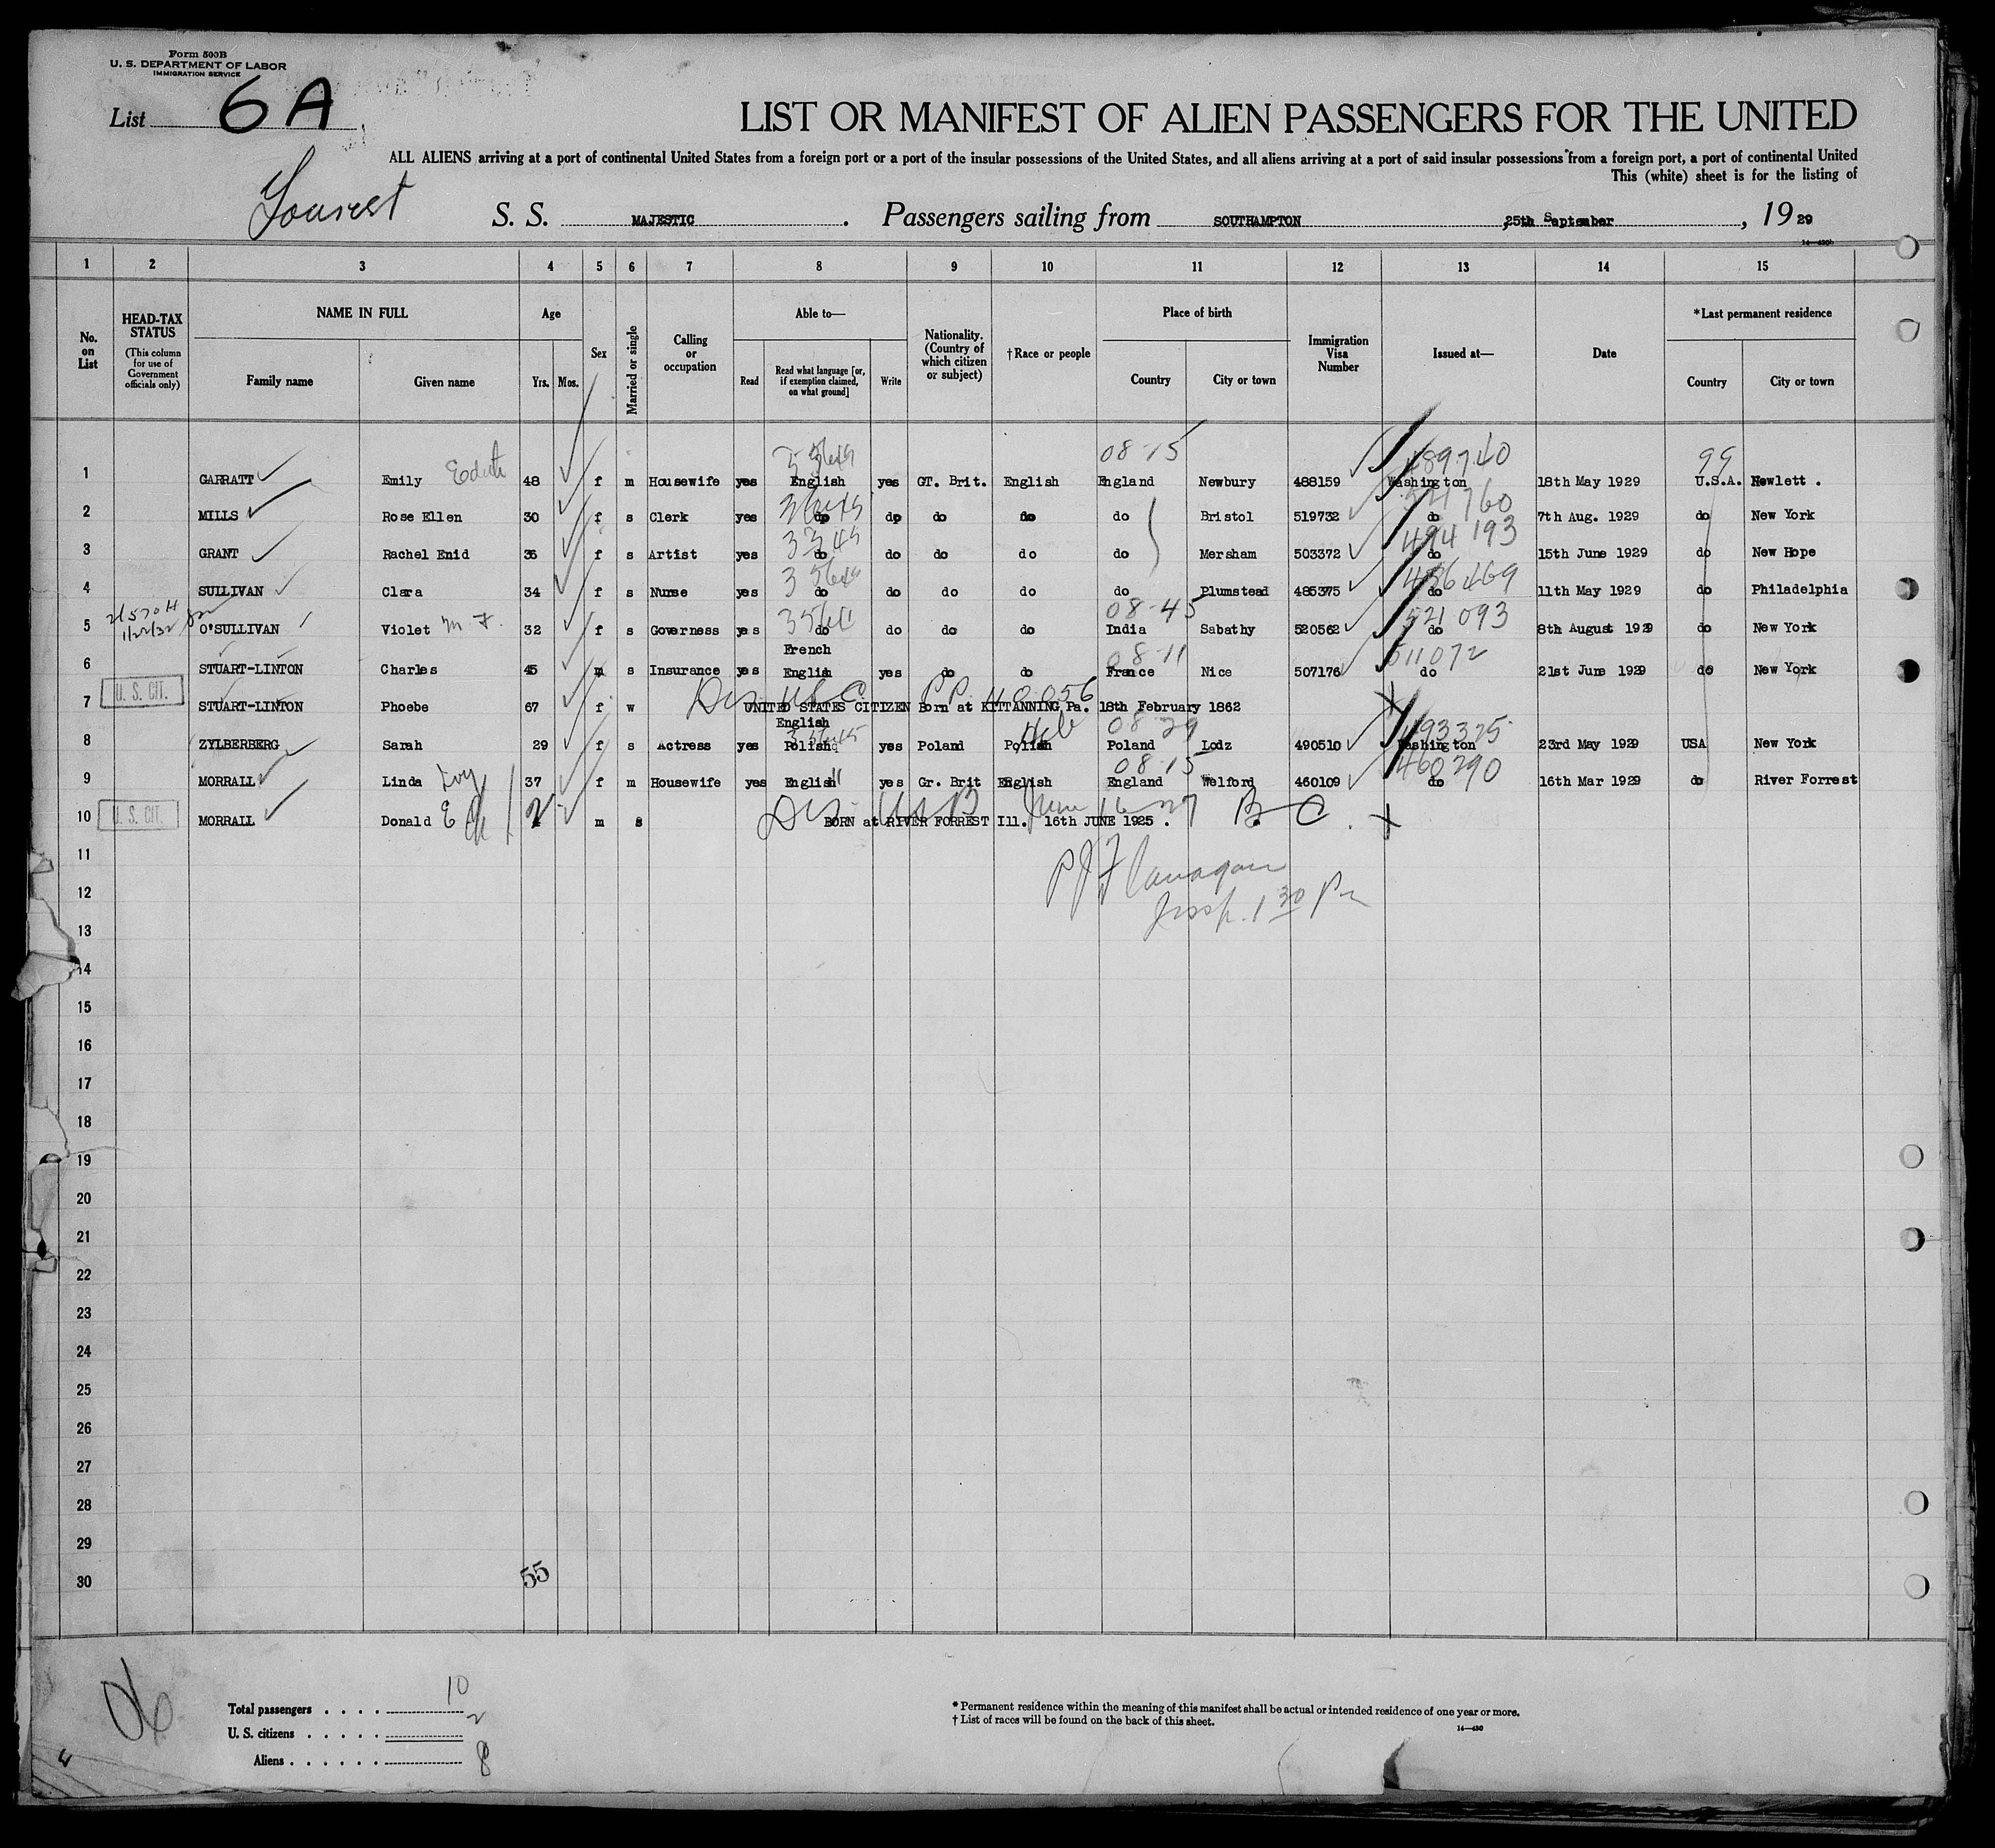 Form 500B
U. S. DEPARTMENT OF LABOR
IMMIGRATION SERVICE
List 6A
LIST OR MANIFEST OF ALIEN PASSENGERS FOR THE UNITED
ALL ALIENS arriving at a port of continental United States from a foreign port or a port of the insular possessions of the United States, and all aliens arriving at a port of said insular possessions from a foreign port, a port of continental United
This (white) sheet is for the listing of
Tourist S. S. MAJESTIC. Passengers sailing from SOUTHAMPTON, 25th September, 1929
14—430b
1 2 3 4 5 6 7 8 9 10 11 12 13 14 15
No. on List
HEAD-TAX STATUS (This column for use of Government officials only)
NAME IN FULL
Family name Given name
Age
Yrs. Mos.
Sex
Married or single
Calling or occupation
Able to—
Read Read what language [or, if exemption claimed, on what ground] Write
Nationality. (Country of which citizen or subject)
†Race or people
Place of birth
Country City or town
Immigration Visa Number
Issued at—
Date
*Last permanent residence
Country City or town
08-15 489740 99
1 GARRATT Emily Edith 48 f m Housewife yes English yes GT. Brit. English England Newbury 488159 Washington 18th May 1929 U.S.A. Hewlett .
2 MILLS Rose Ellen 30 f s Clerk yes do do do do do Bristol 519732 do 7th Aug. 1929 do New York
494193
3 GRANT Rachel Enid 36 f s Artist yes do do do do do Mersham 503372 do 15th June 1929 do New Hope
486469
4 SULLIVAN Clara 34 f s Nurse yes do do do do do Plumstead 485375 do 11th May 1929 do Philadelphia
08-45 521093
5 O'SULLIVAN Violet M F. 32 f s Governess yes do do do do India Sabathy 520562 do 8th August 1929 do New York
French 08-11 511072
6 STUART-LINTON Charles 45 m s Insurance yes English yes do do France Nice 507176 do 21st June 1929 do New York
U. S. CIT.
7 STUART-LINTON Phoebe 67 f w UNITED STATES CITIZEN Born at KITTANNING Pa. 18th February 1862
English Heb 08-29 493375
8 ZYLBERBERG Sarah 29 f s Actress yes Polish yes Poland Polish Poland Lodz 490510 Washington 23rd May 1929 USA New York
08-15 460290
9 MORRALL Linda Ivy 37 f m Housewife yes English yes Gr. Brit English England Welford 460109 do 16th Mar 1929 do River Forrest
U. S. CIT.
10 MORRALL Donald E 4 m s BORN at RIVER FORREST Ill. 16th JUNE 1925 . B C . X
11
12 Insp. 1 30 Pm
13
14
15
16
17
18
19
20
21
22
23
24
25
26
27
28
29
30
55
Total passengers . . . . 10
U. S. citizens . . . . . 2
Aliens . . . . . . 8
* Permanent residence within the meaning of this manifest shall be actual or intended residence of one year or more.
† List of races will be found on the back of this sheet.
14—430